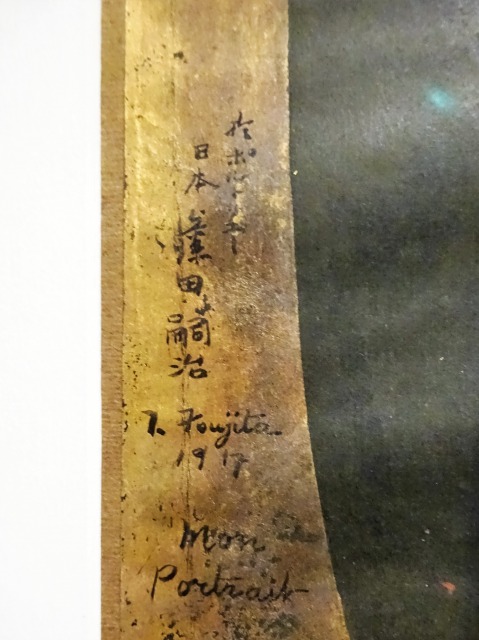 於
日本 藤田嗣治
T. Foujita
1917
Mon
Portrait